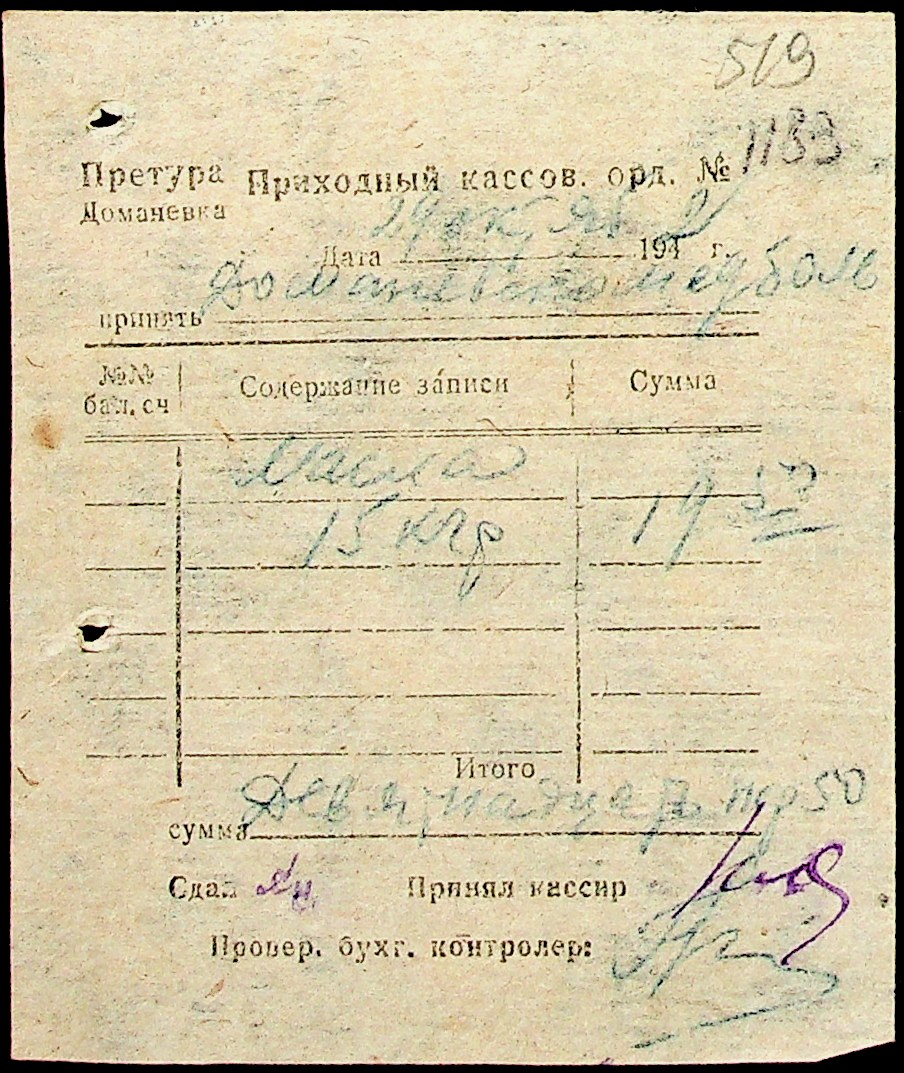 519
1133
Претура Приходный кассов. орд. №
Доманевка
Дата 29 октяб 194 г.
принять
№№ бал. сч Содержание записи Сумма
масла
15 кгр 19 50
Итого
сумма Девятнадцать 50
Сдал Принял кассир
Провер. бухг. контролер: